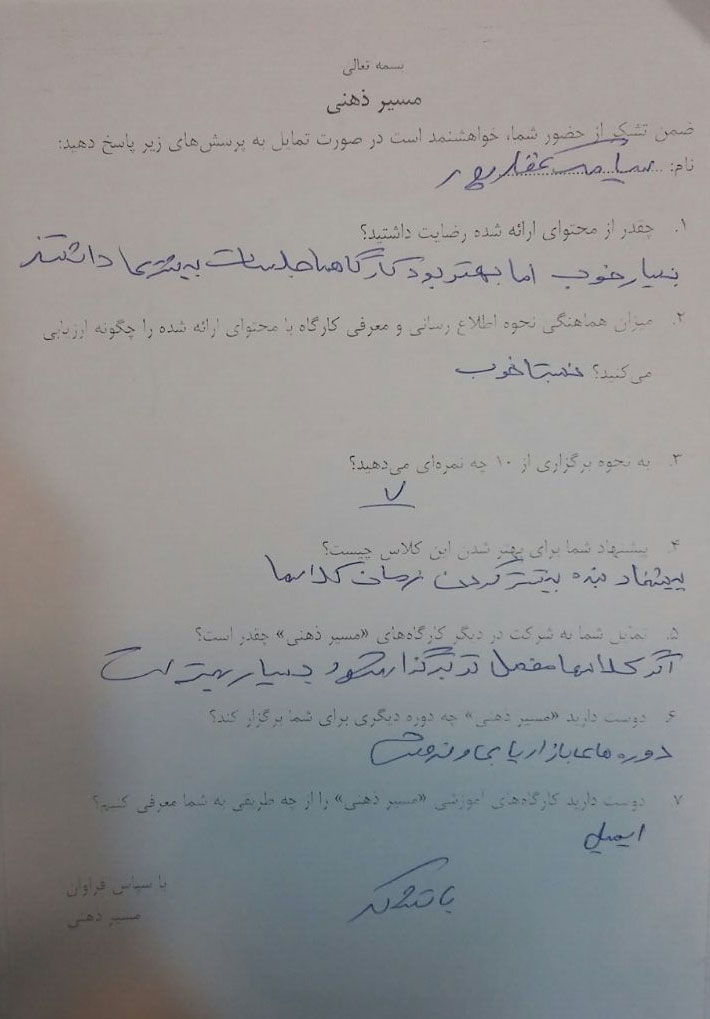 بسمه تعالی
مسیر ذهنی
ضمن تشکر از حضور شما، خواهشمند است در صورت تمایل به پرسش‌های زیر پاسخ دهید:
نام: سیامک غفارپور
۱. چقدر از محتوای ارائه شده رضایت داشتید؟
بسیار خوب اما بهتر بود کارگاهها جلسات بیشتری داشتند
۲. میزان هماهنگی نحوه اطلاع رسانی و معرفی کارگاه با محتوای ارائه شده را چگونه ارزیابی
می‌کنید؟ نسبتا خوب
۳. به نحوه برگزاری از ۱۰ چه نمره‌ای می‌دهید؟
۷
۴. پیشنهاد شما برای بهتر شدن این کلاس چیست؟
پیشنهاد بنده بیشتر کردن زمان کلاسها
۵. تمایل شما به شرکت در دیگر کارگاه‌های «مسیر ذهنی» چقدر است؟
اگر کلاسها مفصل تر برگذار شود بسیار بهتر است
۶. دوست دارید «مسیر ذهنی» چه دوره دیگری برای شما برگزار کند؟
دوره های بازاریابی و فروش
۷. دوست دارید کارگاه‌های آموزشی «مسیر ذهنی» را از چه طریقی به شما معرفی کنیم؟
ایمیل
با تشکر
با سپاس فراوان
مسیر ذهنی